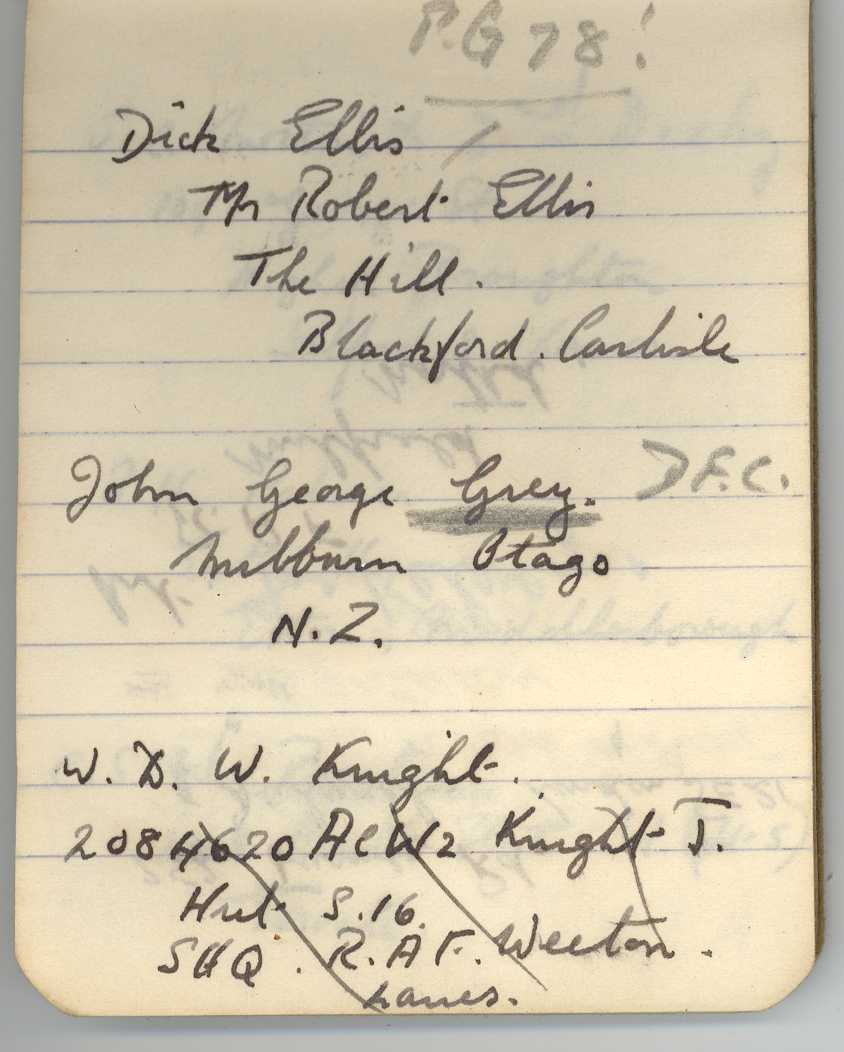 P.G 78!
Dick Ellis
Mr Robert Ellis
The Hill.
Blackford. Carlisle
John George Grey. D F.C.
Milburn Otago
N.Z.
W. D. W. Knight.
2084620 ACW2 Knight J.
Hut S.16.
SHQ. R.A.F. Weeton.
Lancs.